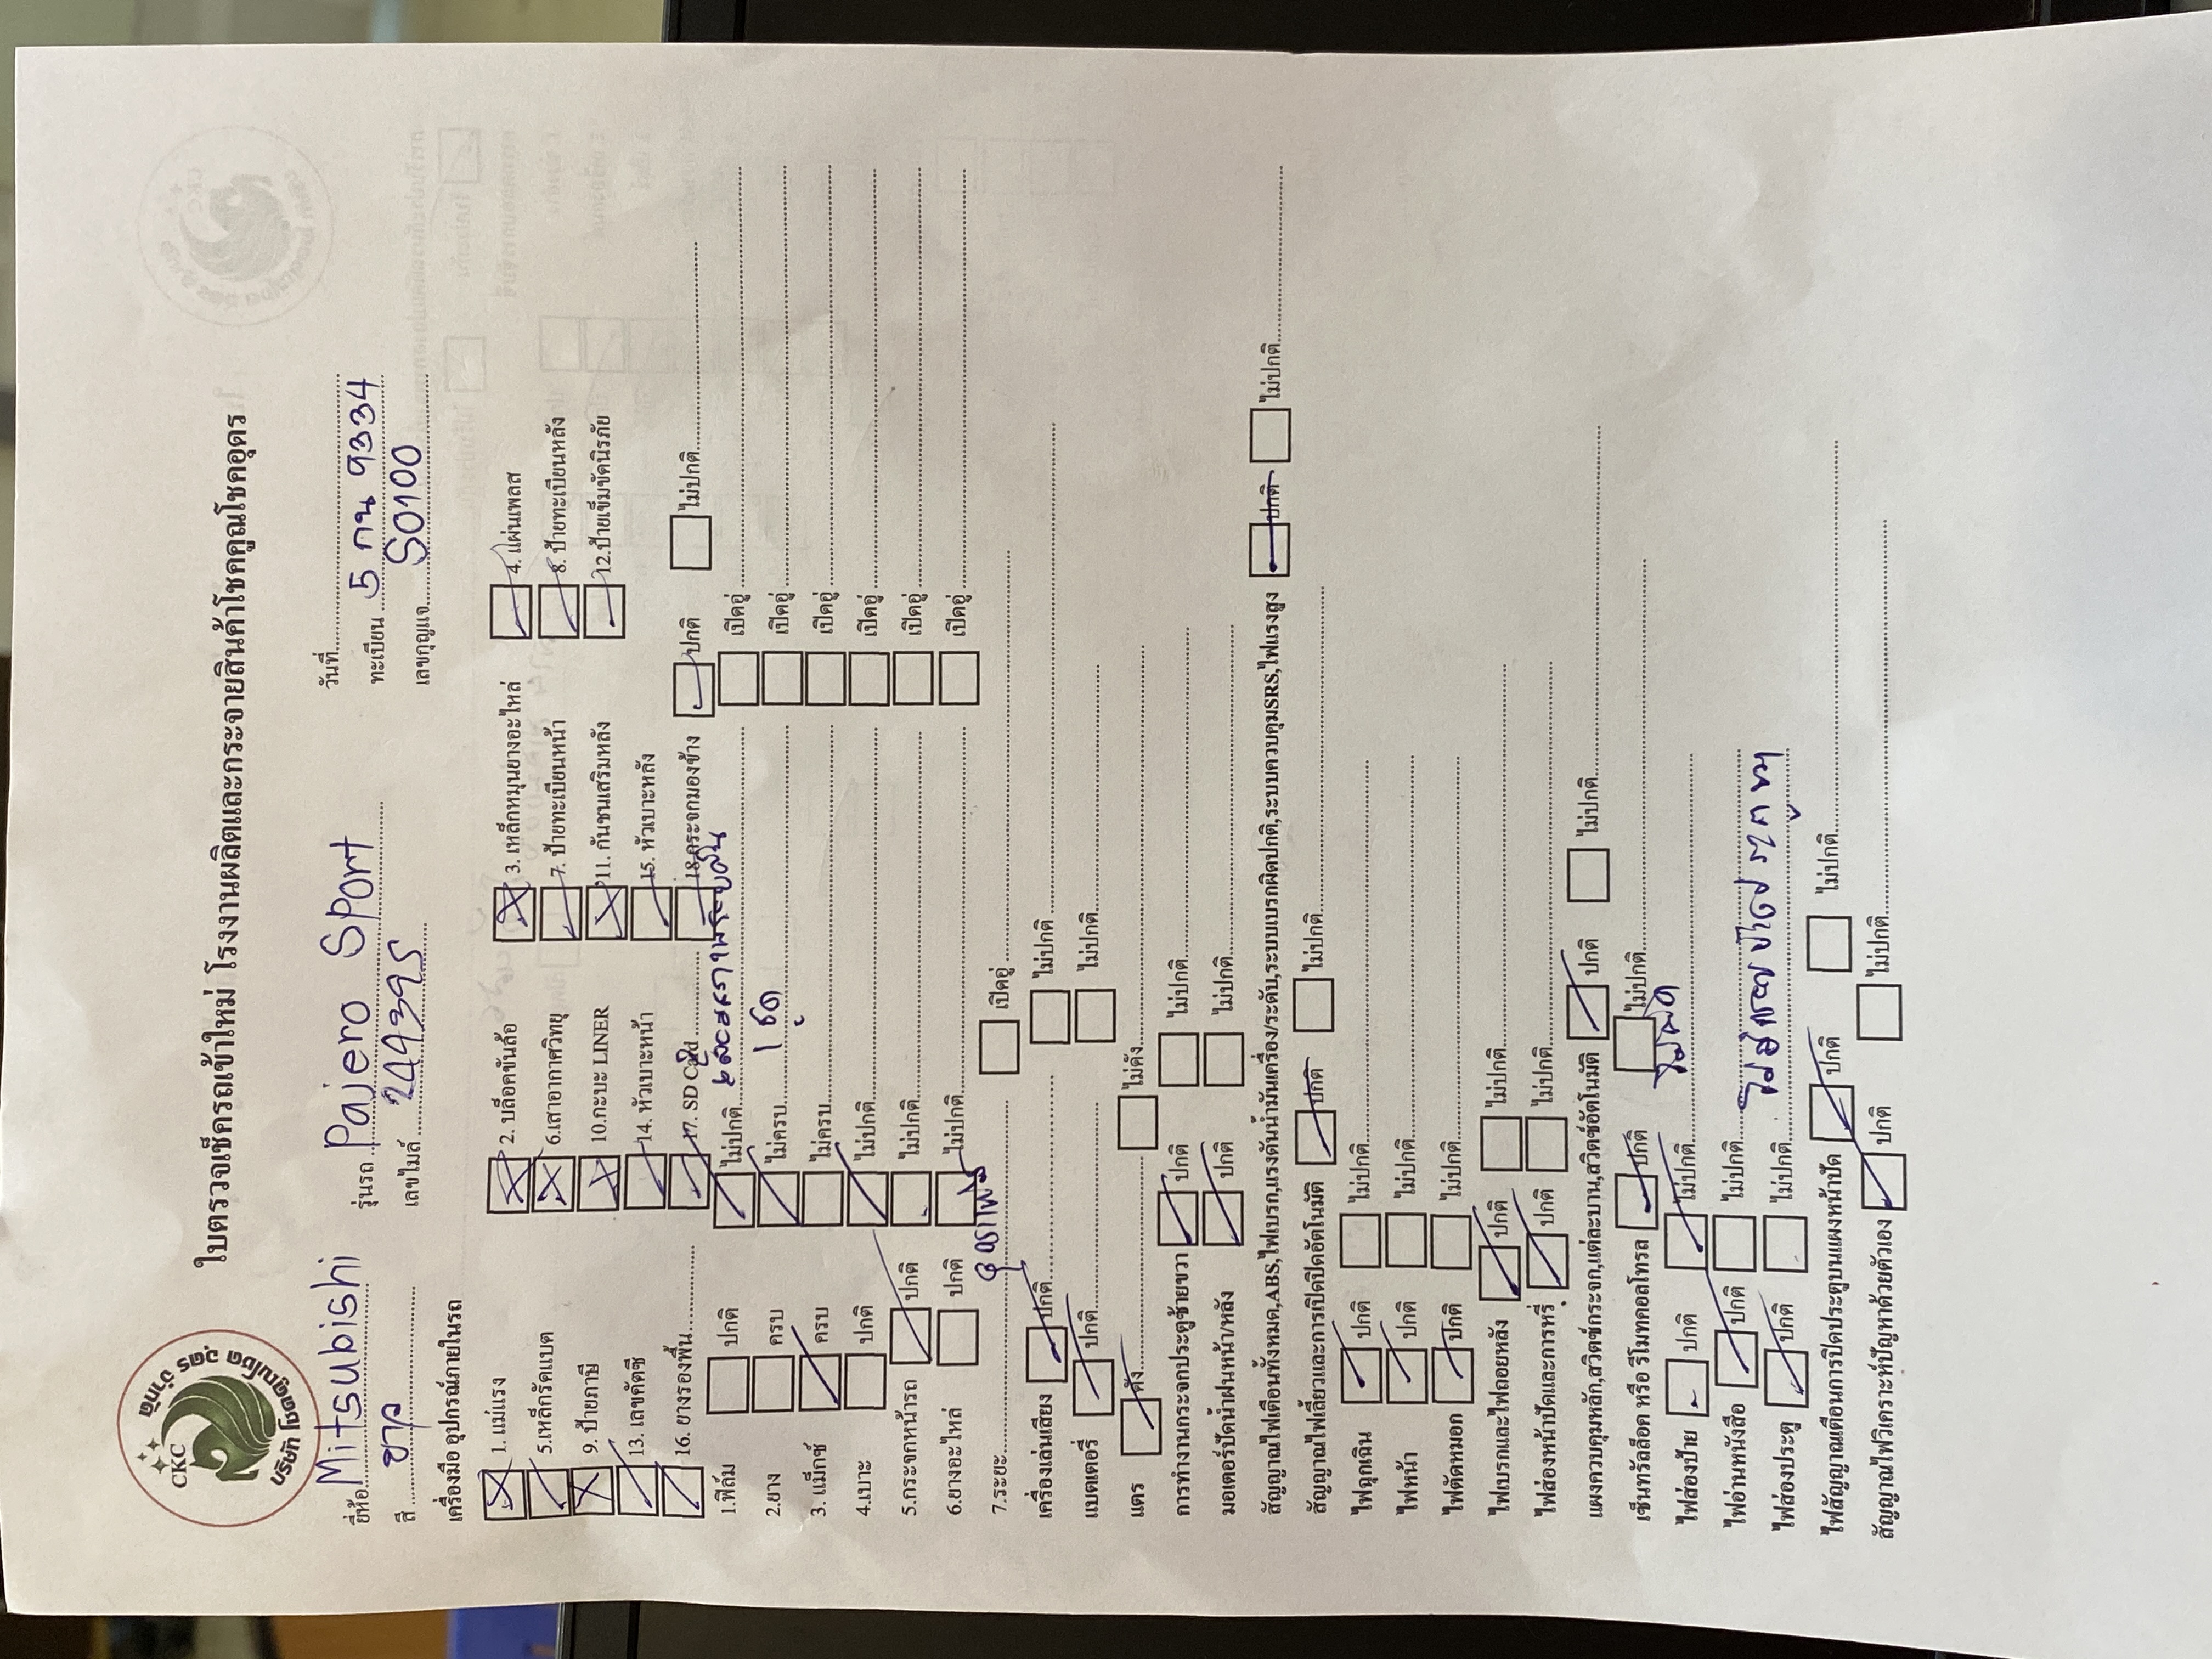 CKC
บริษัท โชคคูณโชค อุดร จำกัด
ใบตรวจเช็ครถเข้าใหม่ โรงงานผลิตและกระจายสินค้าโชคคูณโชคอุดร
ยี่ห้อ Mitsubishi รุ่นรถ Pajero Sport วันที่
สี ขาว เลขไมล์ 249395 ทะเบียน 5 กน 9334
เลขกุญแจ S0100
เครื่องมือ อุปกรณ์ภายในรถ
1. แม่แรง 2. บล็อคขันล้อ 3. เหล็กหมุนยางอะไหล่ 4. แผ่นเพลส
5.เหล็กรัดแบต 6.เสาอากาศวิทยุ 7. ป้ายทะเบียนหน้า 8. ป้ายทะเบียนหลัง
9. ป้ายภาษี 10.กะบะ LINER 11. กันชนเสริมหลัง 12.ป้ายเข็มขัดนิรภัย
13. เลขคัตซี 14. หัวเบาะหน้า 15. หัวเบาะหลัง
16. ยางรองพื้น 17. SD Card 18.กระจกมองข้าง ปกติ ไม่ปกติ
1.ฟิล์ม ปกติ ไม่ปกติ เปิดอู่
2.ยาง ครบ ไม่ครบ 1 ชุด เปิดอู่
3. แม็กซ์ ครบ ไม่ครบ เปิดอู่
4.เบาะ ปกติ ไม่ปกติ เปิดอู่
5.กระจกหน้ารถ ปกติ ไม่ปกติ เปิดอู่
6.ยางอะไหล่ ปกติ ไม่ปกติ เปิดอู่
7.ระยะ เปิดอู่
เครื่องเล่นเสียง ปกติ ไม่ปกติ
แบตเตอรี่ ปกติ ไม่ปกติ
แตร ดัง ไม่ดัง
การทำงานกระจกประตูซ้ายขวา ปกติ ไม่ปกติ
มอเตอร์ปัดน้ำฝนหน้า/หลัง ปกติ ไม่ปกติ
สัญญาณไฟเตือนทั้งหมด,ABS,ไฟเบรก,แรงดันน้ำมันเครื่อง/ระดับ,ระบบเบรกผิดปกติ,ระบบควบคุมSRS,ไฟแรงสูง ปกติ ไม่ปกติ
สัญญาณไฟเลี้ยวและการเปิดปิดอัตโนมัติ ปกติ ไม่ปกติ
ไฟฉุกเฉิน ปกติ ไม่ปกติ
ไฟหน้า ปกติ ไม่ปกติ
ไฟตัดหมอก ปกติ ไม่ปกติ
ไฟเบรกและไฟถอยหลัง ปกติ ไม่ปกติ
ไฟส่องหน้าปัดและการหรี่ ปกติ ไม่ปกติ
แผงควบคุมหลัก,สวิตซ์กระจก,แต่ละบาน,สวิตซ์อัตโนมัติ ปกติ ไม่ปกติ
เซ็นทรัลล็อค หรือ รีโมทคอลโทรล ปกติ ไม่ปกติ
ไฟส่องป้าย ปกติ ไม่ปกติ ไม่ติด
ไฟอ่านหนังสือ ปกติ ไม่ปกติ
ไฟส่องประตู ปกติ ไม่ปกติ
ไฟสัญญาณเตือนการปิดประตูบนแผงหน้าปัด ปกติ ไม่ปกติ
สัญญาณไฟวิเคราะห์ปัญหาด้วยตัวเอง ปกติ ไม่ปกติ